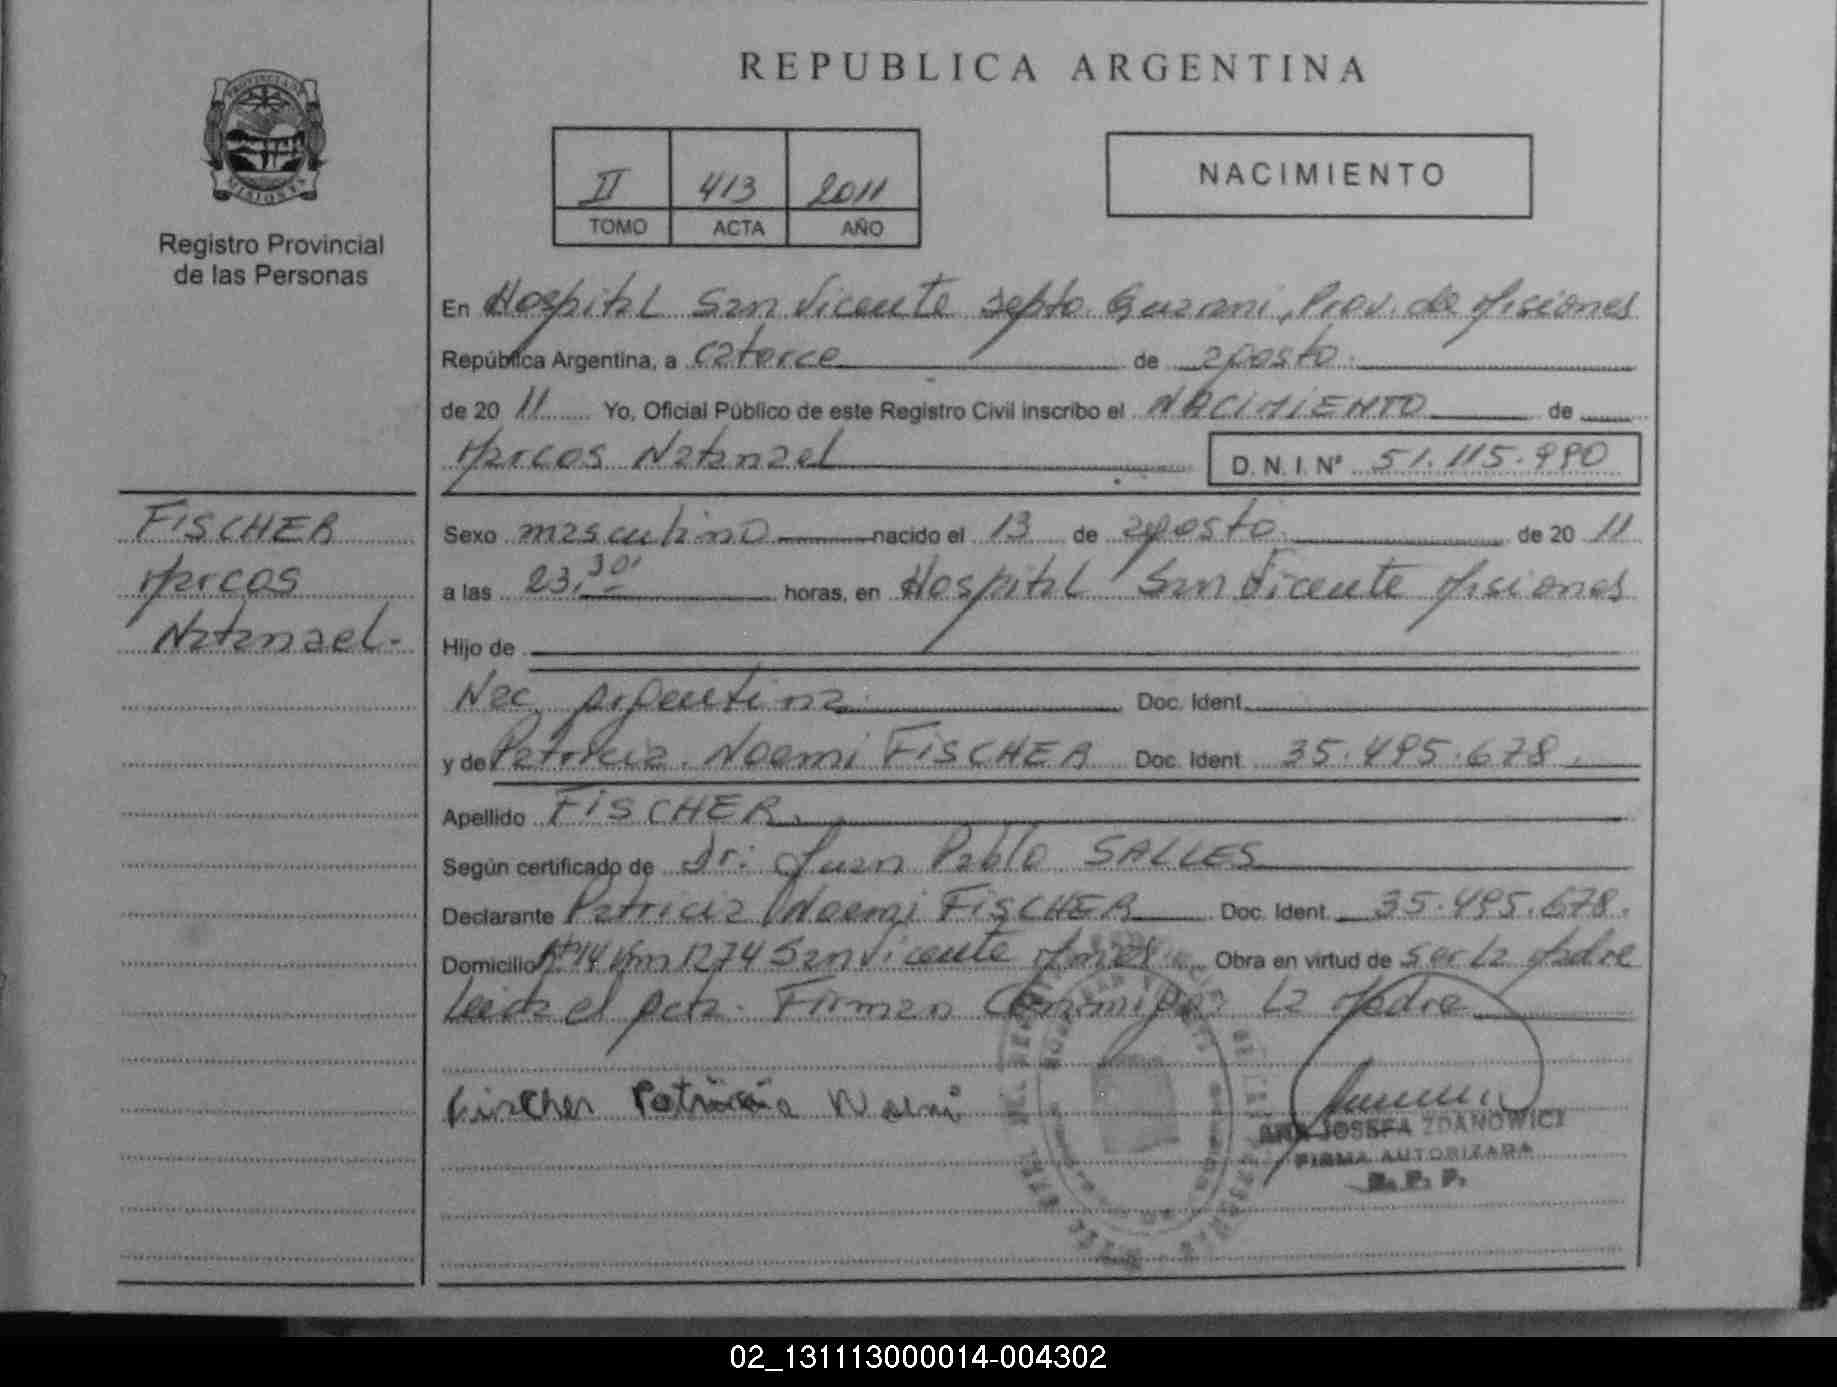 REPUBLICA ARGENTINA
PROVINCIA DE
MISIONES
Registro Provincial
de las Personas
II 413 2011
TOMO ACTA AÑO
NACIMIENTO
En Hospital San Vicente Depto. Guarani, Prov. de Misiones
República Argentina, a catorce de agosto
de 20 11 Yo, Oficial Público de este Registro Civil inscribo el NACIMIENTO de
Marcos Natanael D. N. I. Nº 51.115.990
FISCHER
Marcos
Natanael.-
Sexo masculino nacido el 13 de agosto de 20 11
a las 23,30' horas, en Hospital San Vicente Misiones
Hijo de
Nac. argentina Doc. Ident.
y de Patricia Noemi FISCHER Doc. Ident 35.495.678.
Apellido FISCHER.
Según certificado de Dr: Juan Pablo SALLES
Declarante Patricia Noemi FISCHER Doc. Ident 35.495.678.
Domicilio 14 Km 1274 San Vicente Obra en virtud de ser la Madre
Leida el acta. Firman Conmigo: la Madre
Fischer Patricia Noemi
ANA JOSEFA ZDANOWICZ
FIRMA AUTORIZADA
R. P. P.
02_131113000014-004302